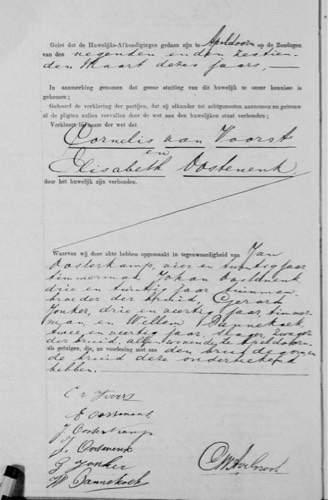 Gelet dat de Huwelijks-Afkondigingen gedaan zijn te Apeldoorn op de Zondagen
van den negenden en den zestien-
den Maart dezes jaars,
In aanmerking genomen dat geene stuiting van dit huwelijk te onzer kennisse is
gekomen;
Gehoord de verklaring der partijen, dat zij elkander tot echtgenooten aannemen en getrouw
al de pligten zullen vervullen door de wet aan den huwelijken staat verbonden;
Verklaart in naam der wet dat
Cornelis van Voorst
en
Elisabeth Oostenenk
door het huwelijk zijn verbonden.
Waarvan wij deze akte hebben opgemaakt in tegenwoordigheid van Jan
Oosterkamp, vier en twintig jaar
timmerman Johan Oostenenk
drie en twintig jaar
broeder der bruid, Gerard
Jonker, drie en veertig jaar, timmer-
man en Willem Pannekoek
twee en veertig jaar, zwager
der bruid, allen wonende te Apeldoorn
als getuigen, die, na voorlezing met ons den bruidegom en
de bruid deze onderteekend
hebben.
C v Voorst
E Oostenenk
J Oosterkamp
J. Oostenenk
G Jonker
W Pannekoek